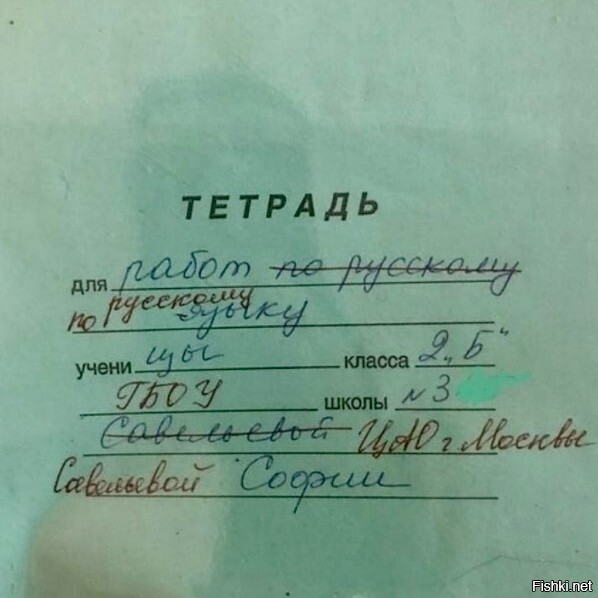 ТЕТРАДЬ
для работ по русскому
по русскому языку
ученицы класса 2 „Б“
ГБОУ школы №3
Савельевой ЦАО г Москвы
Савельевой Софии
Fishki.net